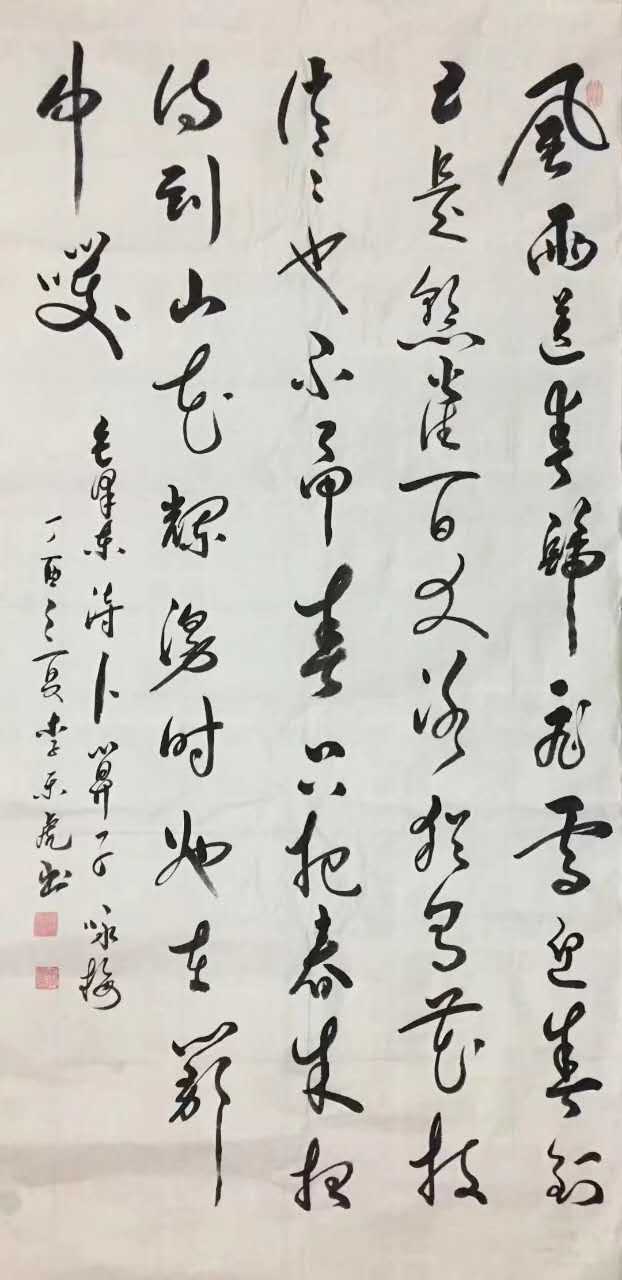 風雨送春歸飛雪迎春到
已是懸崖百丈冰猶有花枝
俏〻也不爭春只把春来报
待到山花爛漫时她在叢
中咲
毛泽东诗卜算子咏梅
丁酉之夏李虎书